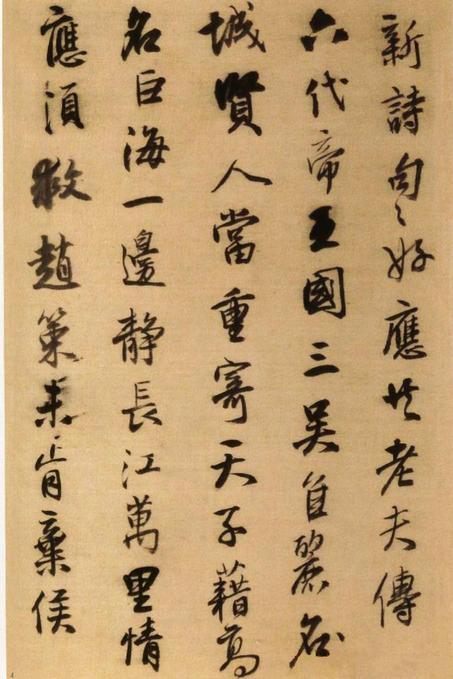 新詩句々好應共老夫傳
六代帝王國三吳自麗名
城賢人當重寄天子藉高
名巨海一邊靜長江萬里情
應須救趙策未肯棄侯